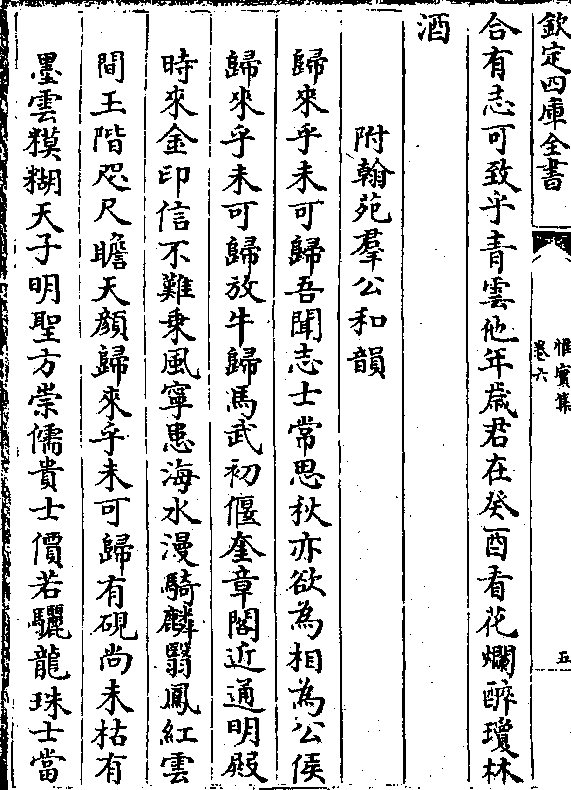 欽定四庫全書
惟實集
卷六
五
合有志可致乎青雲他年歲君在癸酉看花爛醉瓊林
酒
附翰苑羣公和韻
歸來乎未可歸吾聞志士常思秋亦欲為相為公侯
歸來乎未可歸放牛歸馬武初偃奎章閣近通明殿
時來金印信不難乗風寧患海水漫騎麟翳鳳紅雲
間王階咫尺瞻天顔歸來乎未可歸有硯尚未枯有
墨雲糢糊天子明聖方崇儒貴士價若驪龍珠士當